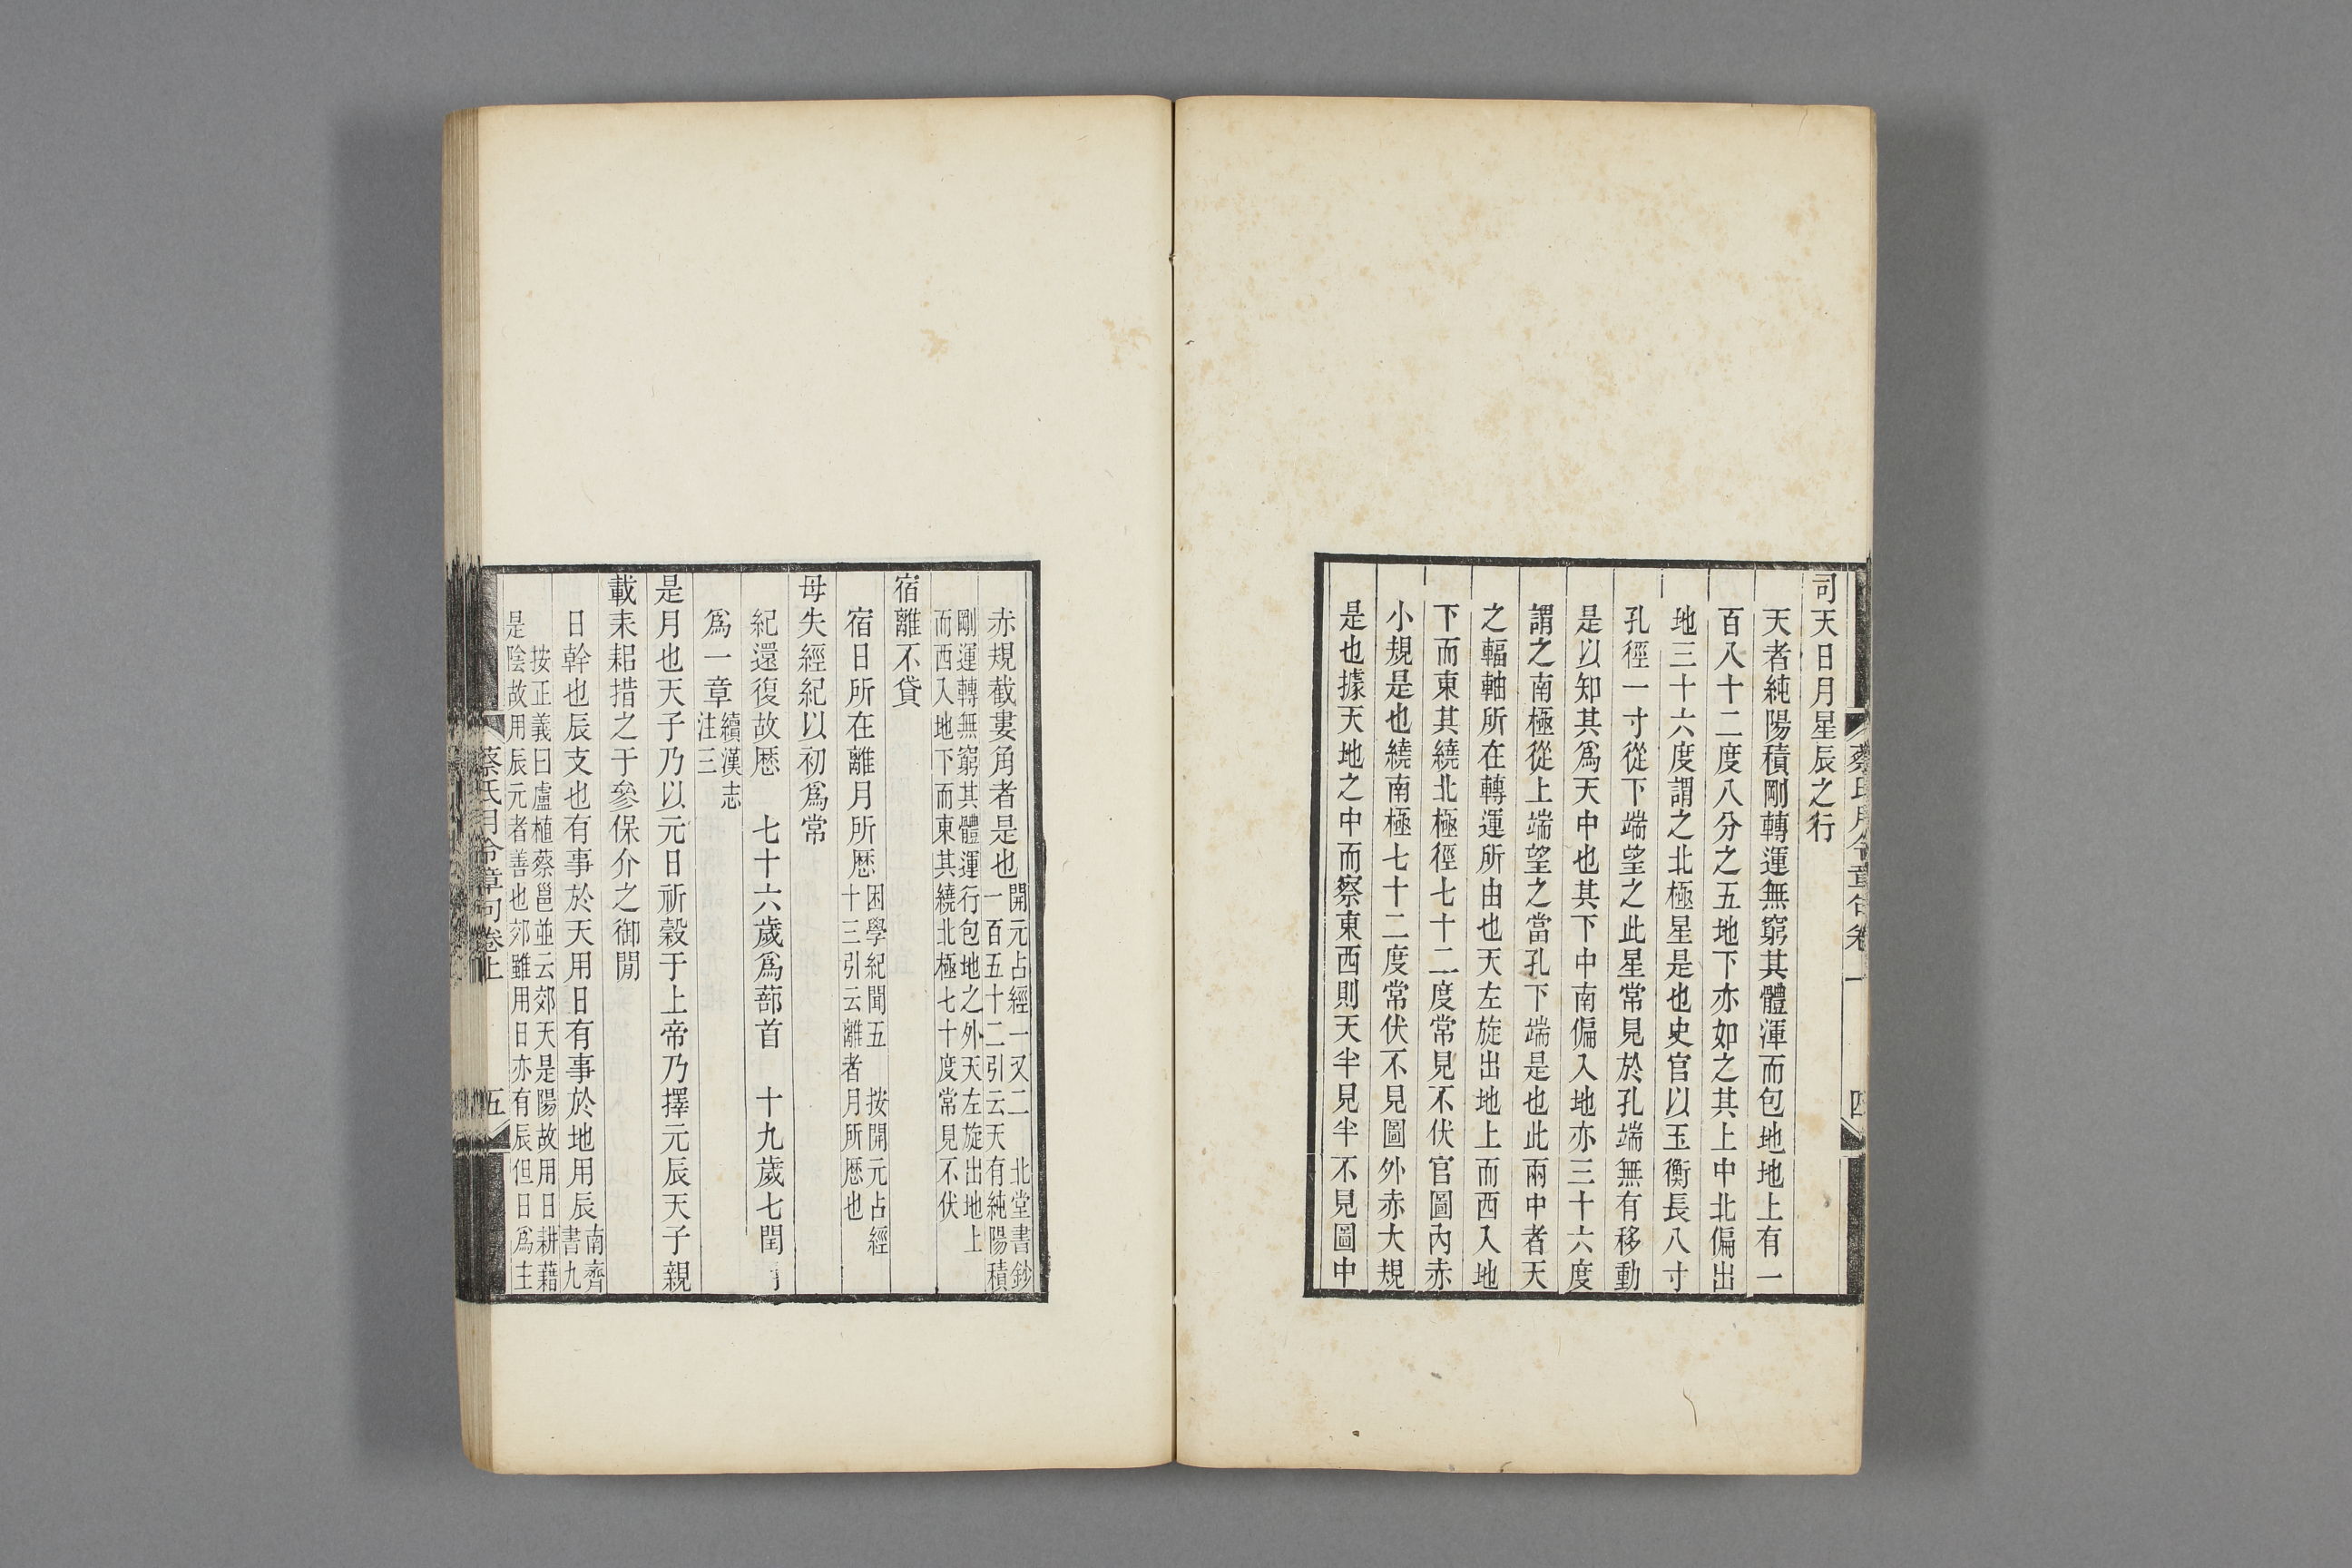 蔡氏月令章句卷上
四
司天日月星辰之行
天者純陽積剛轉運無窮其體渾而包地地上有一
百八十二度八分之五地下亦如之其上中北偏出
地三十六度謂之北極星是也史官以玉衡長八寸
孔徑一寸從下端望之此星常見於孔端無有移動
是以知其爲天中也其下中南偏入地亦三十六度
謂之南極從上端望之當孔下端是也此兩中者天
之輻軸所在轉運所由也天左旋出地上而西入地
下而東其繞北極徑七十二度常見不伏官圖內赤
小規是也繞南極七十二度常伏不見圖外赤大規
是也據天地之中而察東西則天半見半不見圖中
赤規截婁角者是也開元占經一又二 北堂書鈔
一百五十二引云天有純陽積
剛運轉無窮其體運行包地之外天左旋出地上
而西入地下而東其繞北極七十度常見不伏
宿離不貸
宿日所在離月所歷困學紀聞五 按開元占經
十三引云離者月所歷也
毋失經紀以初爲常
紀還復故歷 七十六歲爲蔀首 十九歲七閏
爲一章續漢志
注三
是月也天子乃以元日祈穀于上帝乃擇元辰天子親
載耒耜措之于參保介之御閒
日幹也辰支也有事於天用日有事於地用辰南齊
書九
按正義曰盧植蔡邕並云郊天是陽故用日耕藉
是陰故用辰元者善也郊雖用日亦有辰但日爲主
蔡氏月令章句卷上
五